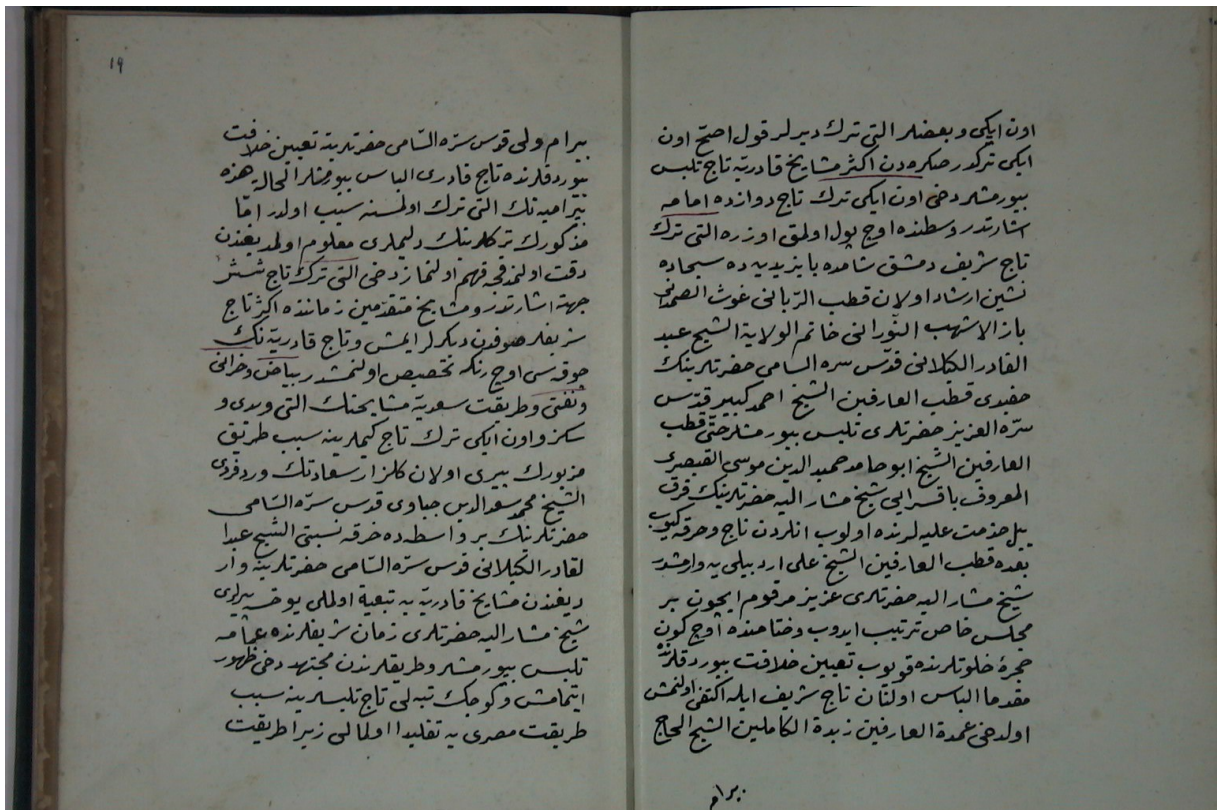 اون ایکی و بعضلر التی ترک دیرلر قول اصح اون
ایکی ترکدر صکره دن اکثر مشایخ قادریه تاج تلبس
بیورمشلر دخی اون ایکی ترک تاج دوازده امامه
اشارتدر وسطنده اوچ یول اولمق اوزره التی ترک
تاج شریف دمشق شامده بایزیدیه ده سجاده
نشین ارشاد اولان قطب الربانی غوث الصمدانی
باز الاشهب النورانی خاتم الولایة الشیخ عبد
القادر الکیلانی قدس سره السامی حضرتلرینک
حفیدی قطب العارفین الشیخ احمد کبیر قدس
سره العزیز حضرتلری تلبس بیورمشلر حتی قطب
العارفین الشیخ ابو حامد حمید الدین موسی القیصری
المعروف باقسرایی شیخ مشار الیه حضرتلرینک قرق
ییل خدمت علیه لرنده اولوب انلردن تاج و خرقه کیوب
بعده قطب العارفین الشیخ علی اردبیلی یه وارمشدر
شیخ مشار الیه حضرتلری عزیز مرقوم ایچون بر
مجلس خاص ترتیب ایدوب وختامنده اوچ کون
حجرۀ خلوتلرنده قویوب تعیین خلافت بیوردقلرنده
مقدما الباس اولنان تاج شریف ایله اکتفی اولنمش
اولدخی عمدة العارفین زبدة الکاملین الشیخ الحاج
بیرام
١٩
بیرام ولی قدس سره السامی حضرتلرینه تعیین خلافت
بیوردقلرنده تاج قادری الباس بیورمشلر الحالة هذه
بیرامیه نک التی ترک اولمسنه سبب اولدر اما
مذکورک ترکلرینک دلیملری معلوم اولمدیغندن
دقت اولنمدقجه فهم اولنماز دخی التی ترک تاج شش
جهته اشارتدر و مشایخ متقدمین زماننده اکثر تاج
شریفلر صوفدن دیکرلر ایمش و تاج قادریه نک
چوقه سی اوچ رنکه تخصیص اولنمشدر بیاض و خرانی
و نفتی و طریقت سعدیه مشایخنک التی و یدی و
سکز و اون ایکی ترک تاج کیملرینه سبب طریق
مزبورک بیری اولان کلزار سعادتک ورد فردی
الشیخ محمد سعد الدین جباوی قدس سره السامی
حضرتلرینک بر واسطه ده خرقه نسبتی الشیخ عبدا
لقادر الکیلانی قدس سره السامی حضرتلرینه وار
دیغندن مشایخ قادریه یه تبعیة اولملی یوخسه پیرلری
شیخ مشار الیه حضرتلری زمان شریفلرنده عمامه
تلبس بیورمشلر و طریقلرندن مجتهد دخی ظهور
ایتمامش و کوچک تپه لی تاج تلبسلرینه سبب
طریقت مصری یه تقلیدا اولمالی زیرا طریقت